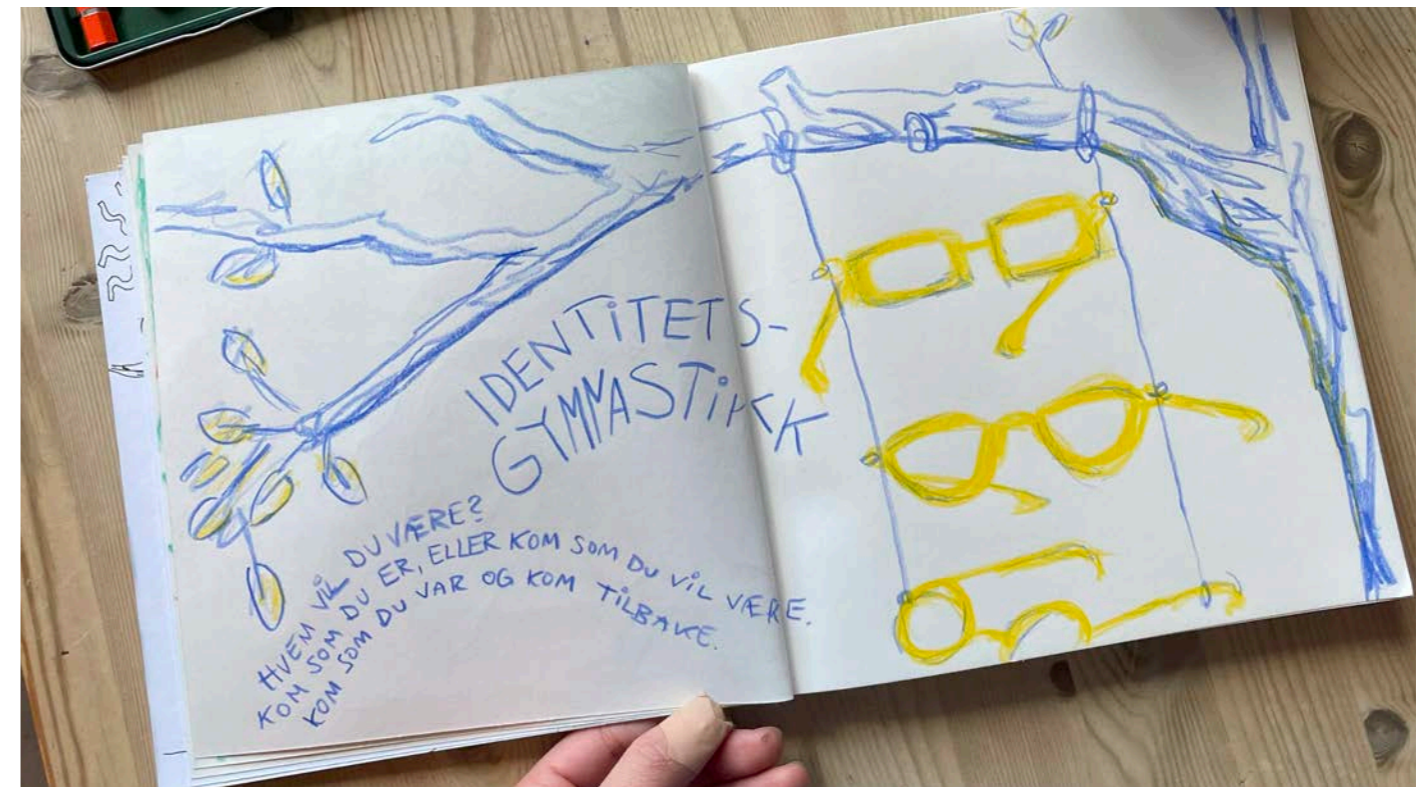 IDENTITETS-
GYMNASTIKK
HVEM VIL DU VÆRE?
KOM SOM DU ER, ELLER KOM SOM DU VIL VÆRE.
KOM SOM DU VAR OG KOM TILBAKE.